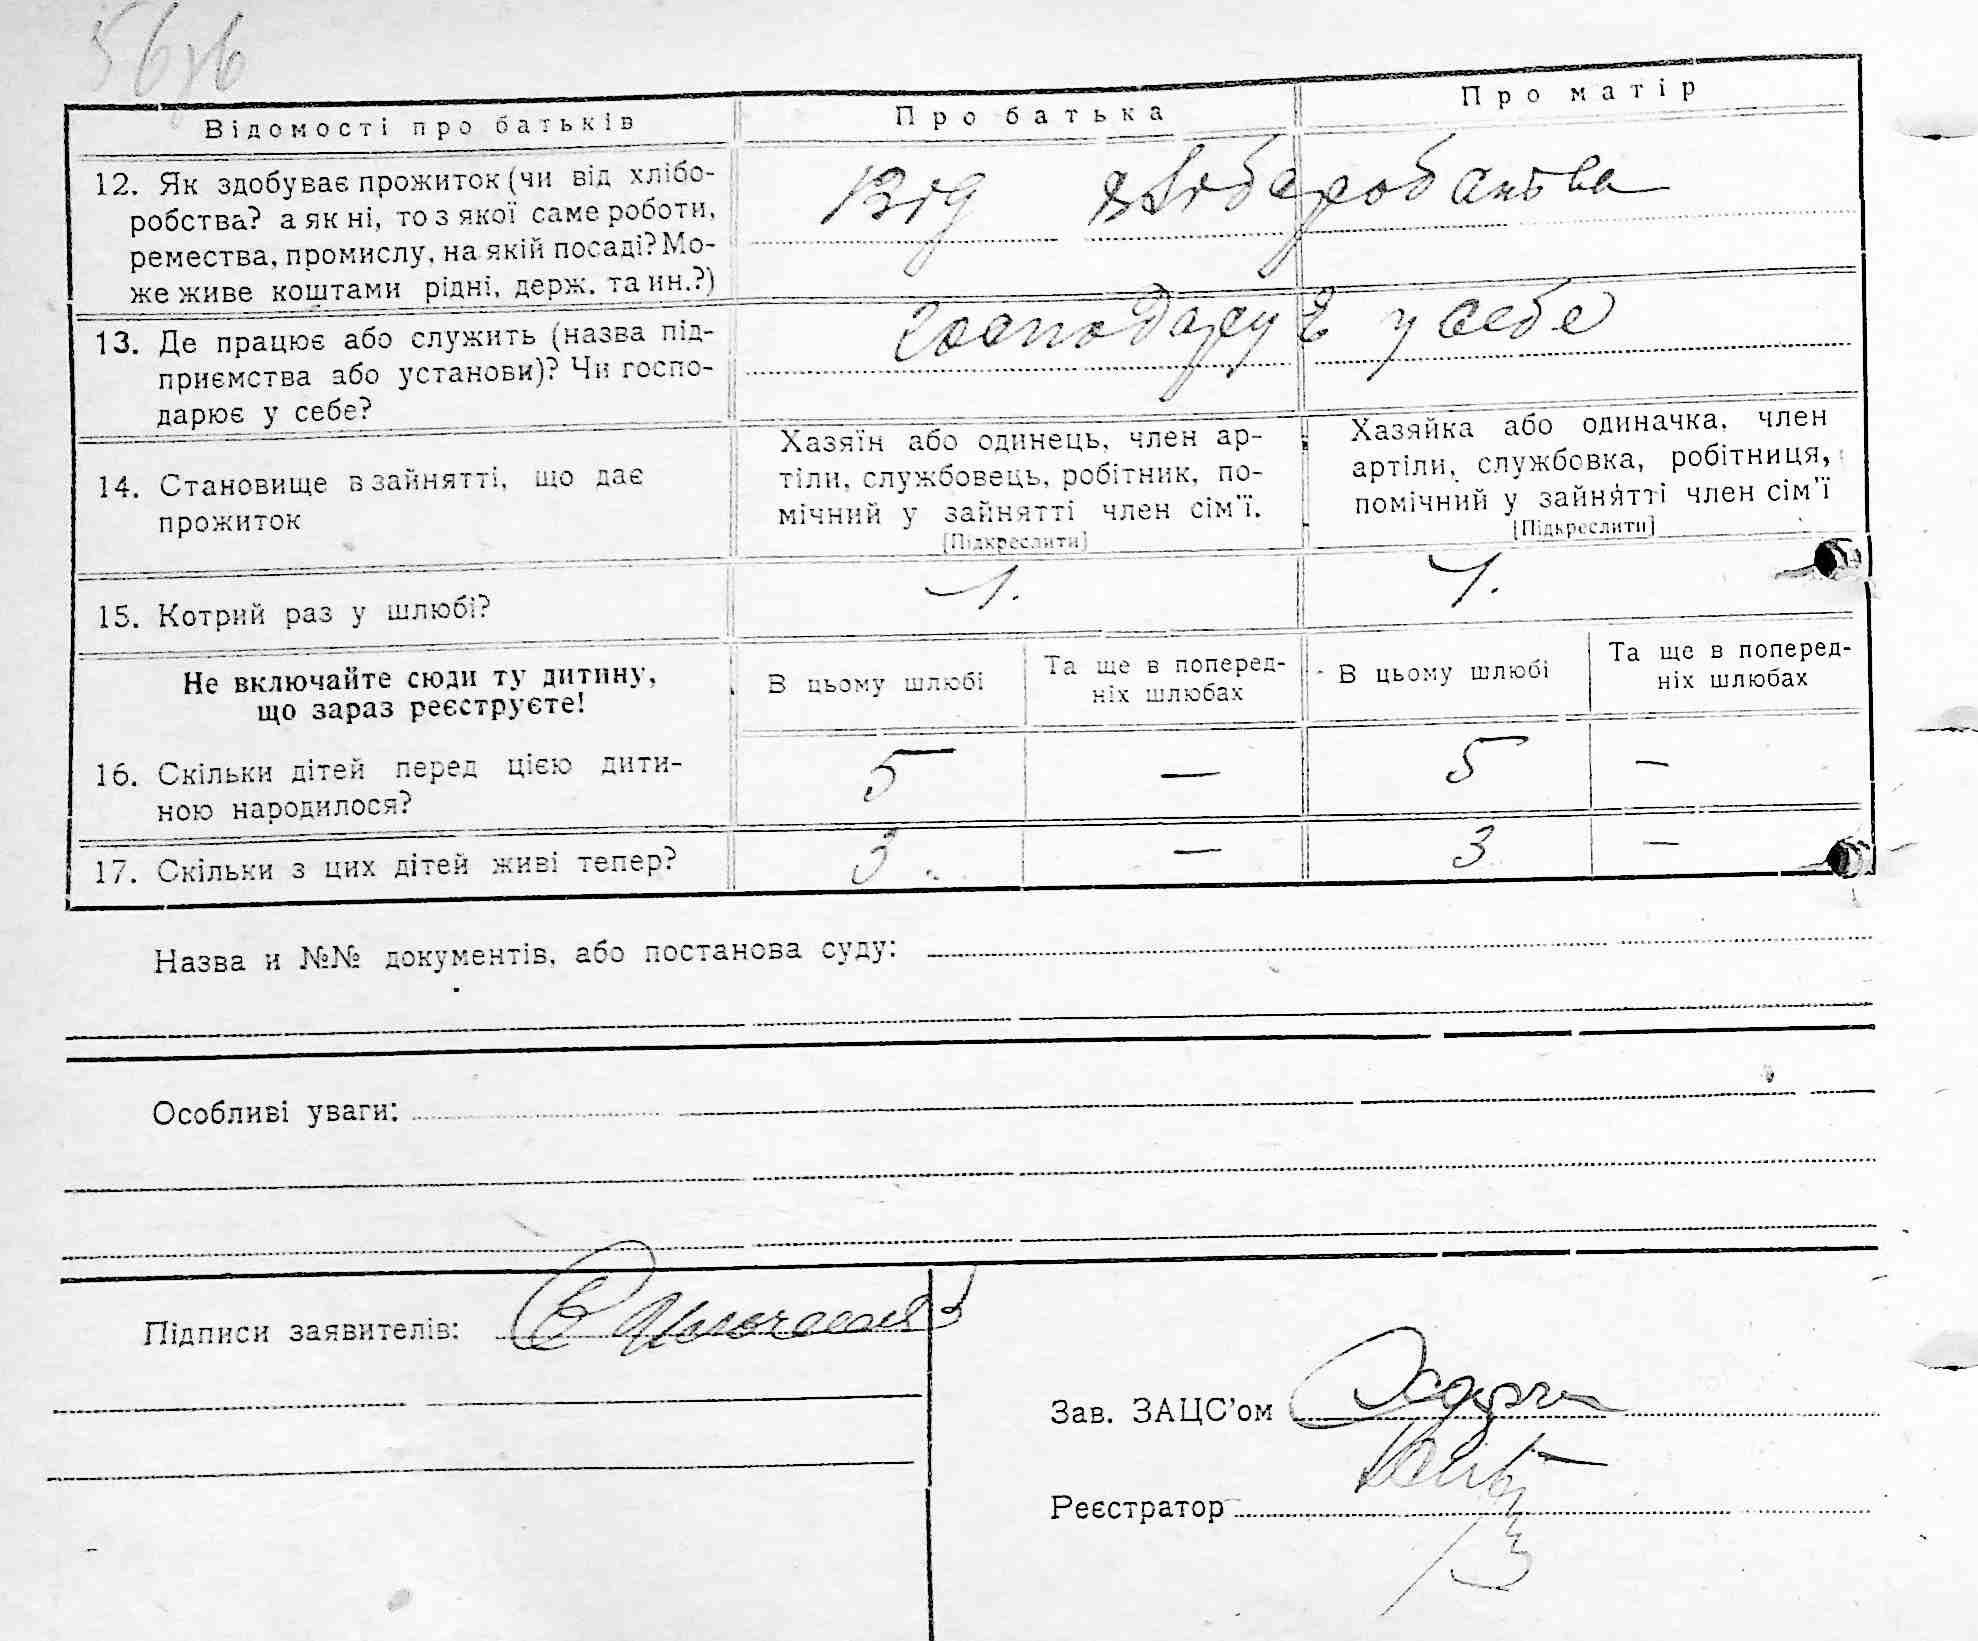 Відомості про батьків Про батька Про матір
12. Як здобуває прожиток (чи від хлібо-
робства? а як ні, то з якої саме роботи,
ремества, промислу, на якій посаді? Мо-
же живе коштами рідні, держ. та ин.?)
Від хліборобства
13. Де працює або служить (назва під-
приємства або установи)? Чи госпо-
дарює у себе?
господарує у себе
14. Становище в зайнятті, що дає
прожиток
Хазяїн або одинець, член ар-
тіли, службовець, робітник, по-
мічний у зайнятті член сім'ї.
[Підкреслити]
Хазяйка або одиначка, член
артіли, службовка, робітниця,
помічний у зайнятті член сім'ї
[Підкреслити]
15. Котрий раз у шлюбі? 1. 1.
Не включайте сюди ту дитину,
що зараз реєструєте!
В цьому шлюбі
Та ще в поперед-
ніх шлюбах
В цьому шлюбі
Та ще в поперед-
ніх шлюбах
16. Скільки дітей перед цією дити-
ною народилося?
5 — 5 —
17. Скільки з цих дітей живі тепер? 3 — 3 —
Назва и №№ документів, або постанова суду:
Особливі уваги:
Підписи заявителів:
Зав. ЗАЦС'ом
Реєстратор